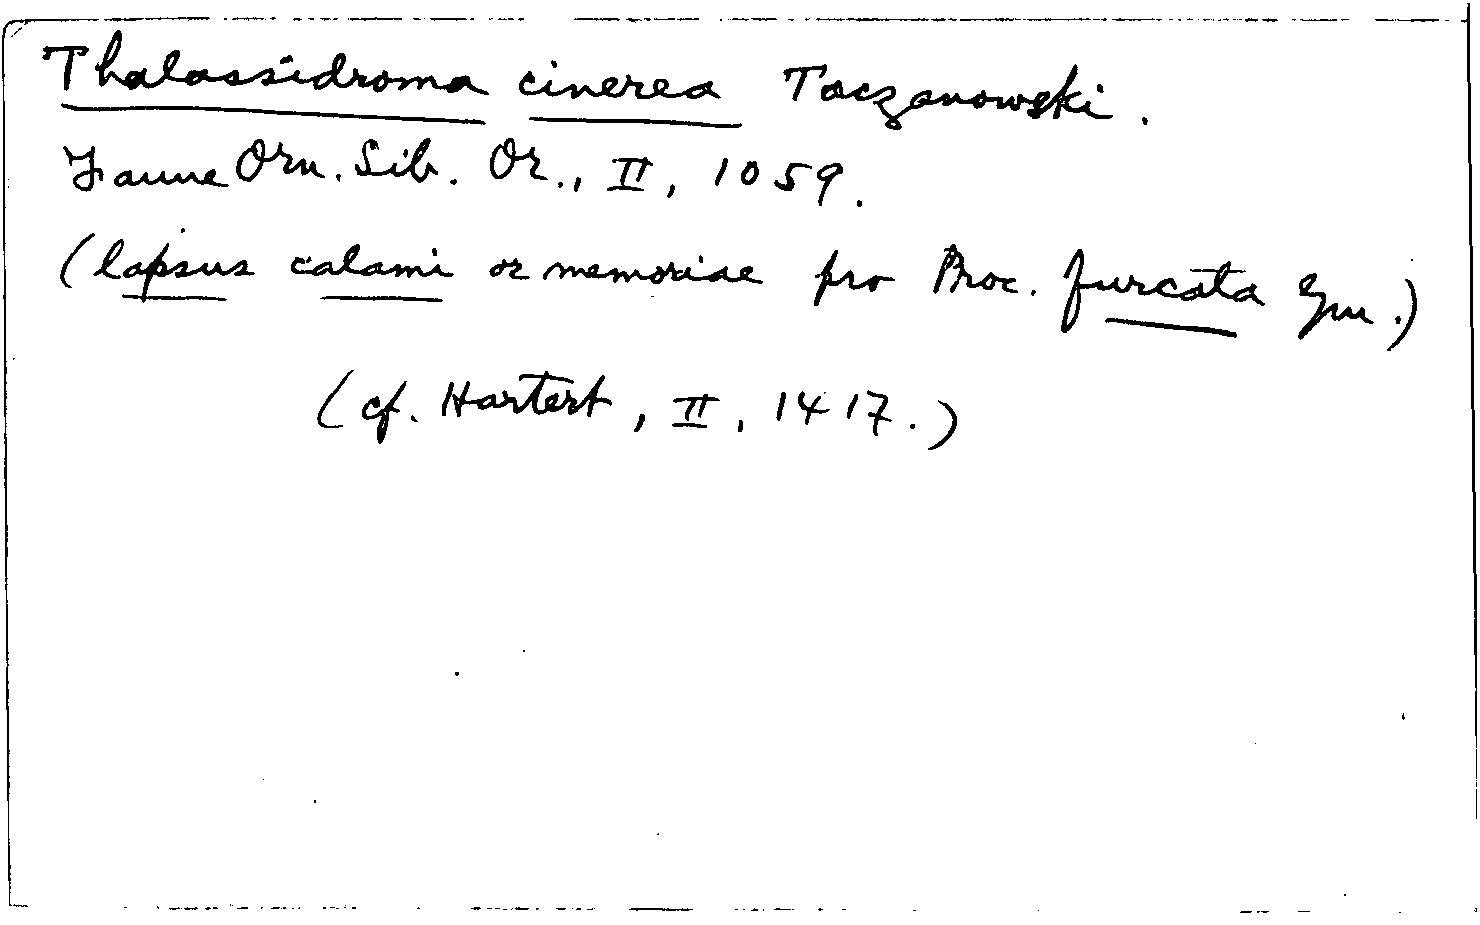 Thalassidroma cinerea Taczanowski.
Faune Orn. Sib. Or., II, 1059.
(lapsus calami or memoriae pro Proc. furcata Gm.)
(cf. Hartert, II, 1417.)